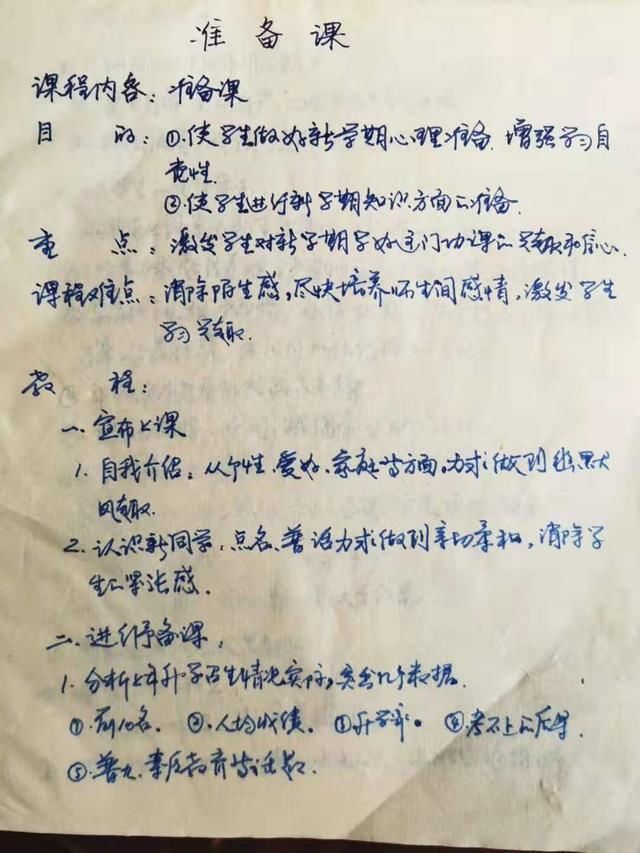 准备课
课程内容：准备课
目 的：①.使学生做好新学期心理准备.增强学习自
觉性.
②.使学生进行新学期知识方面的准备.
重 点：激发学生对新学期学好这门功课的兴趣和信心.
课程难点：消除陌生感，尽快培养师生间感情，激发学生
学习兴趣.
教 程：
一.宣布上课
1.自我介绍：从个性.爱好.家庭等方面，力求做到幽默
风趣.
2.认识新同学.点名.普话力求做到亲切柔和，消除学
生的紧张感.
二.进行予备课：
1.分析上年升学招生情况实际，突出几个数据.
①.前10名. ②.人均成绩. ③升学率. ④考不上的后果.
⑤普九.素质教育等话题.